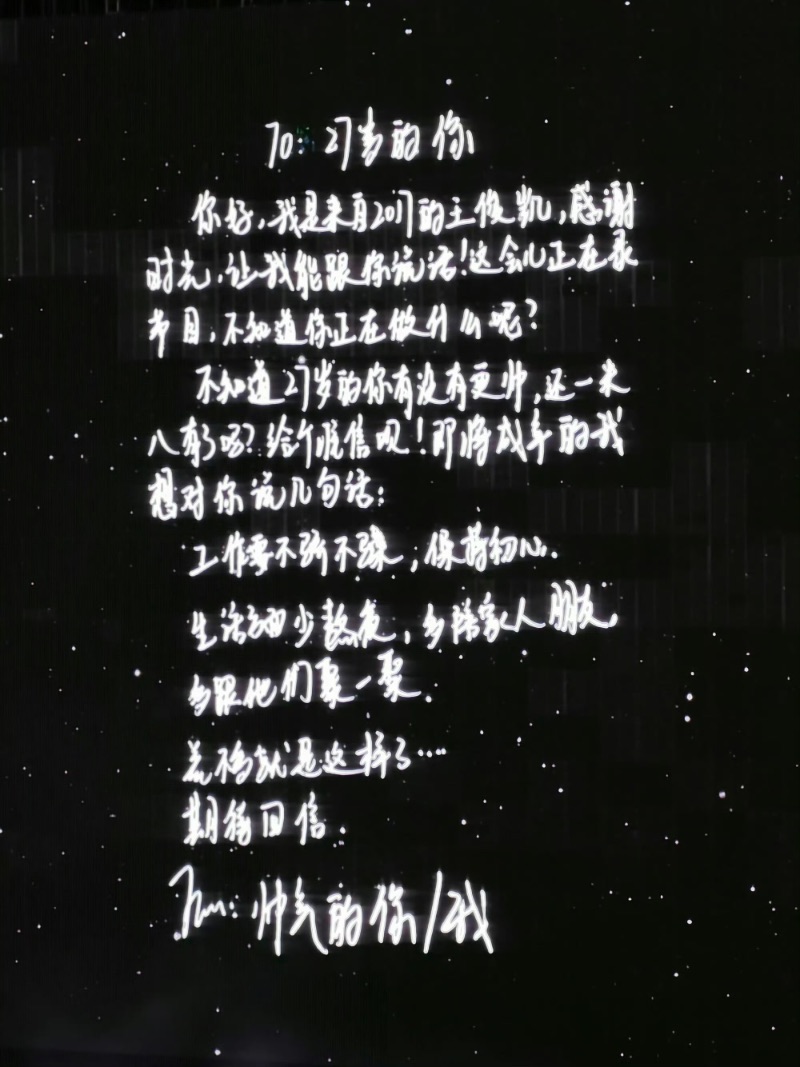 To: 27岁的你
你好,我是来自2017的王俊凯,感谢
时光,让我能跟你说话!这会儿正在录
节目,不知道你正在做什么呢?
不知道27岁的你有没有更帅,还一米
八有了吗?给个准信呗!即将成年的我
想对你说几句话:
工作要不骄不躁,保持初心.
生活方面少熬夜,多陪家人朋友,
多跟他们聚一聚.
差不多就是这样了....
期待回信.
From: 帅气的你/我